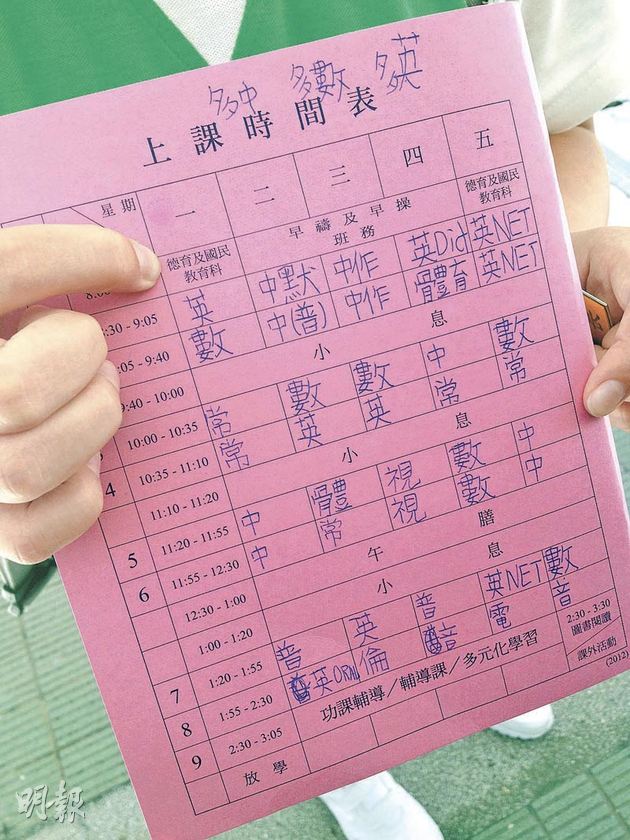 多中 多數 多英
上課時間表
星期 一 二 三 四 五
8:00 德育及國民教育科 早禱及早操 班務 德育及國民教育科
:30 - 9:05 英 中默 中作 英Dict 英NET
:05 - 9:40 數 中(普) 中作 體育 英NET
9:40 - 10:00 小息
10:00 - 10:35 常 數 數 中 數
4 10:35 - 11:10 常 英 英 常 常
11:10 - 11:20 小息
5 11:20 - 11:55 中 體 視 數 中
6 11:55 - 12:30 中 常 視 數 中
12:30 - 1:00 午膳
1:00 - 1:20 小息
7 1:20 - 1:55 普 英 普 英NET 數
8 1:55 - 2:30 英ORAL 倫 音 電 音
9 2:30 - 3:05 功課輔導／輔導課／多元化學習 2:30 - 3:30 圖書閱讀
放學 課外活動
(2012)
明報